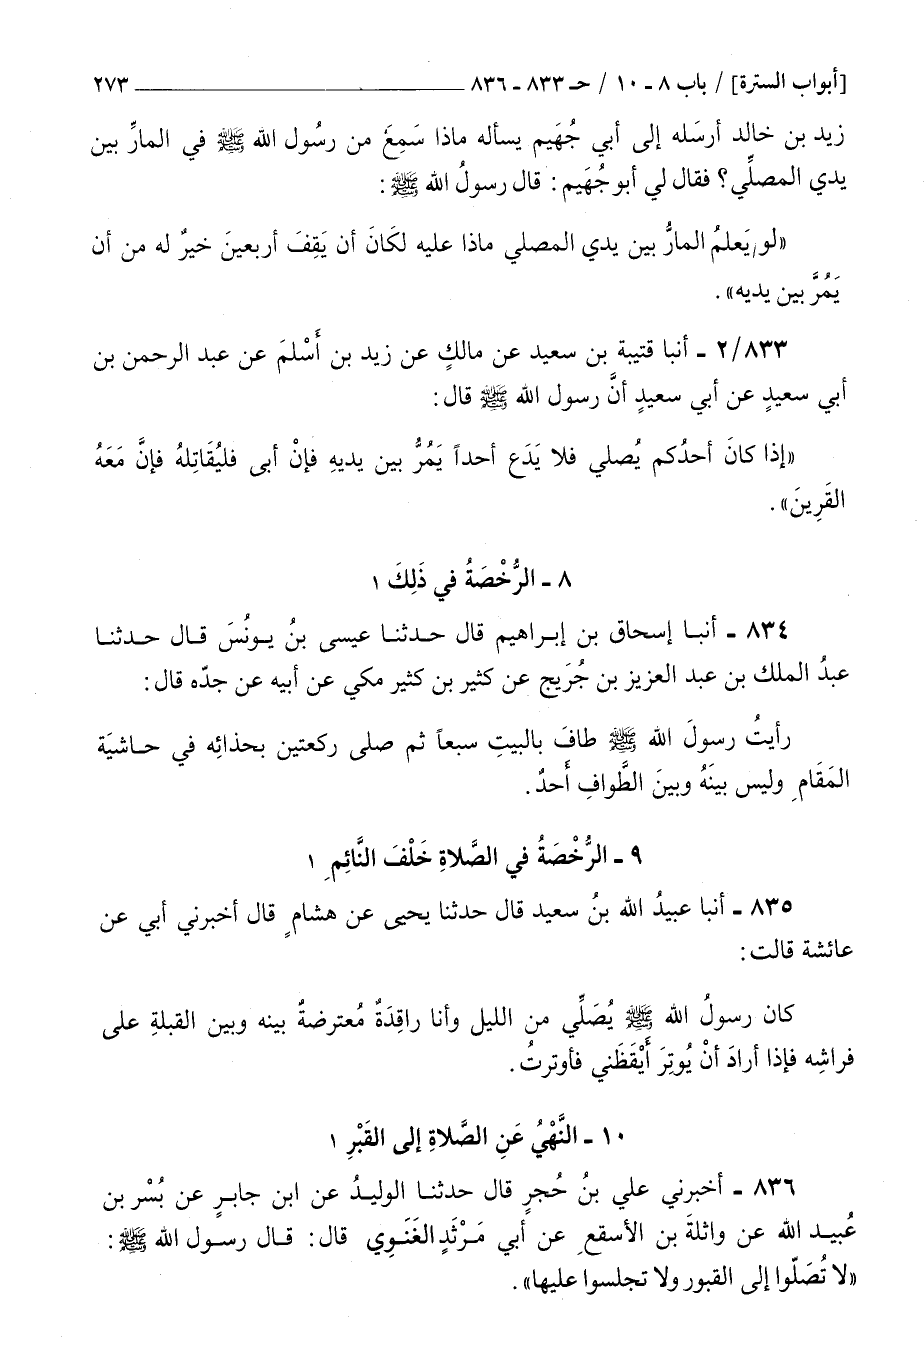 [أبواب السترة] / باب ٨ - ١٠ / حـ ٨٣٣ - ٨٣٦ ٢٧٣
زيد بن خالد أرسَله إلى أبي جُهَيم يسأله ماذا سَمِعَ من رسُول الله ﷺ في المارِّ بين
يدي المصلِّي؟ فقال لي أبو جُهَيم: قال رسولُ الله ﷺ:
«لو يَعلمُ المارُّ بين يدي المصلي ماذا عليه لكَانَ أن يَقِفَ أربعينَ خيرٌ له من أن
يَمُرَّ بين يديه».
٢/٨٣٣ - أنبا قتيبة بن سعيد عن مالكٍ عن زيد بن أَسْلمَ عن عبد الرحمن بن
أبي سعيدٍ عن أبي سعيدٍ أنَّ رسول الله ﷺ قال:
«إذا كانَ أحدُكم يُصلي فلا يَدَع أحداً يَمُرُّ بين يديهِ فإنْ أبى فليُقَاتِلهُ فإنَّ مَعَهُ
القَرِينَ».
٨ - الرُّخْصَةُ في ذَلِكَ ١
٨٣٤ - أنبا إسحاق بن إبراهيم قال حدثنا عيسى بنُ يونُسَ قال حدثنا
عبدُ الملك بن عبد العزيز بن جُرَيج عن كثير بن كثير مكي عن أبيه عن جدّه قال:
رأيتُ رسولَ الله ﷺ طافَ بالبيتِ سبعاً ثم صلى ركعتين بحذائِه في حاشيَة
المَقَامِ وليس بينَهُ وبينَ الطَّوافِ أَحدٌ.
٩ - الرُّخْصَةُ في الصَّلاةِ خَلْفَ النَّائِمِ ١
٨٣٥ - أنبا عبيدُ الله بنُ سعيد قال حدثنا يحيى عن هشامٍ قال أخبرني أبي عن
عائشة قالت:
كان رسولُ الله ﷺ يُصَلِّي من الليل وأنا راقِدَةٌ مُعترضةٌ بينه وبين القبلةِ على
فراشِه فإذا أرادَ أنْ يُوتِرَ أَيْقَظَني فأوترتُ.
١٠ - النَّهْيُ عَنِ الصَّلاةِ إلى القَبْرِ ١
٨٣٦ - أخبرني علي بنُ حُجرٍ قال حدثنا الوليدُ عن ابن جابرٍ عن بُسْر بن
عُبيد الله عن واثلةَ بن الأسقعِ عن أبي مَرْثَدٍ الغَنَوِي قال: قال رسول الله ﷺ:
«لا تُصَلّوا إلى القبور ولا تجلسوا عليها».